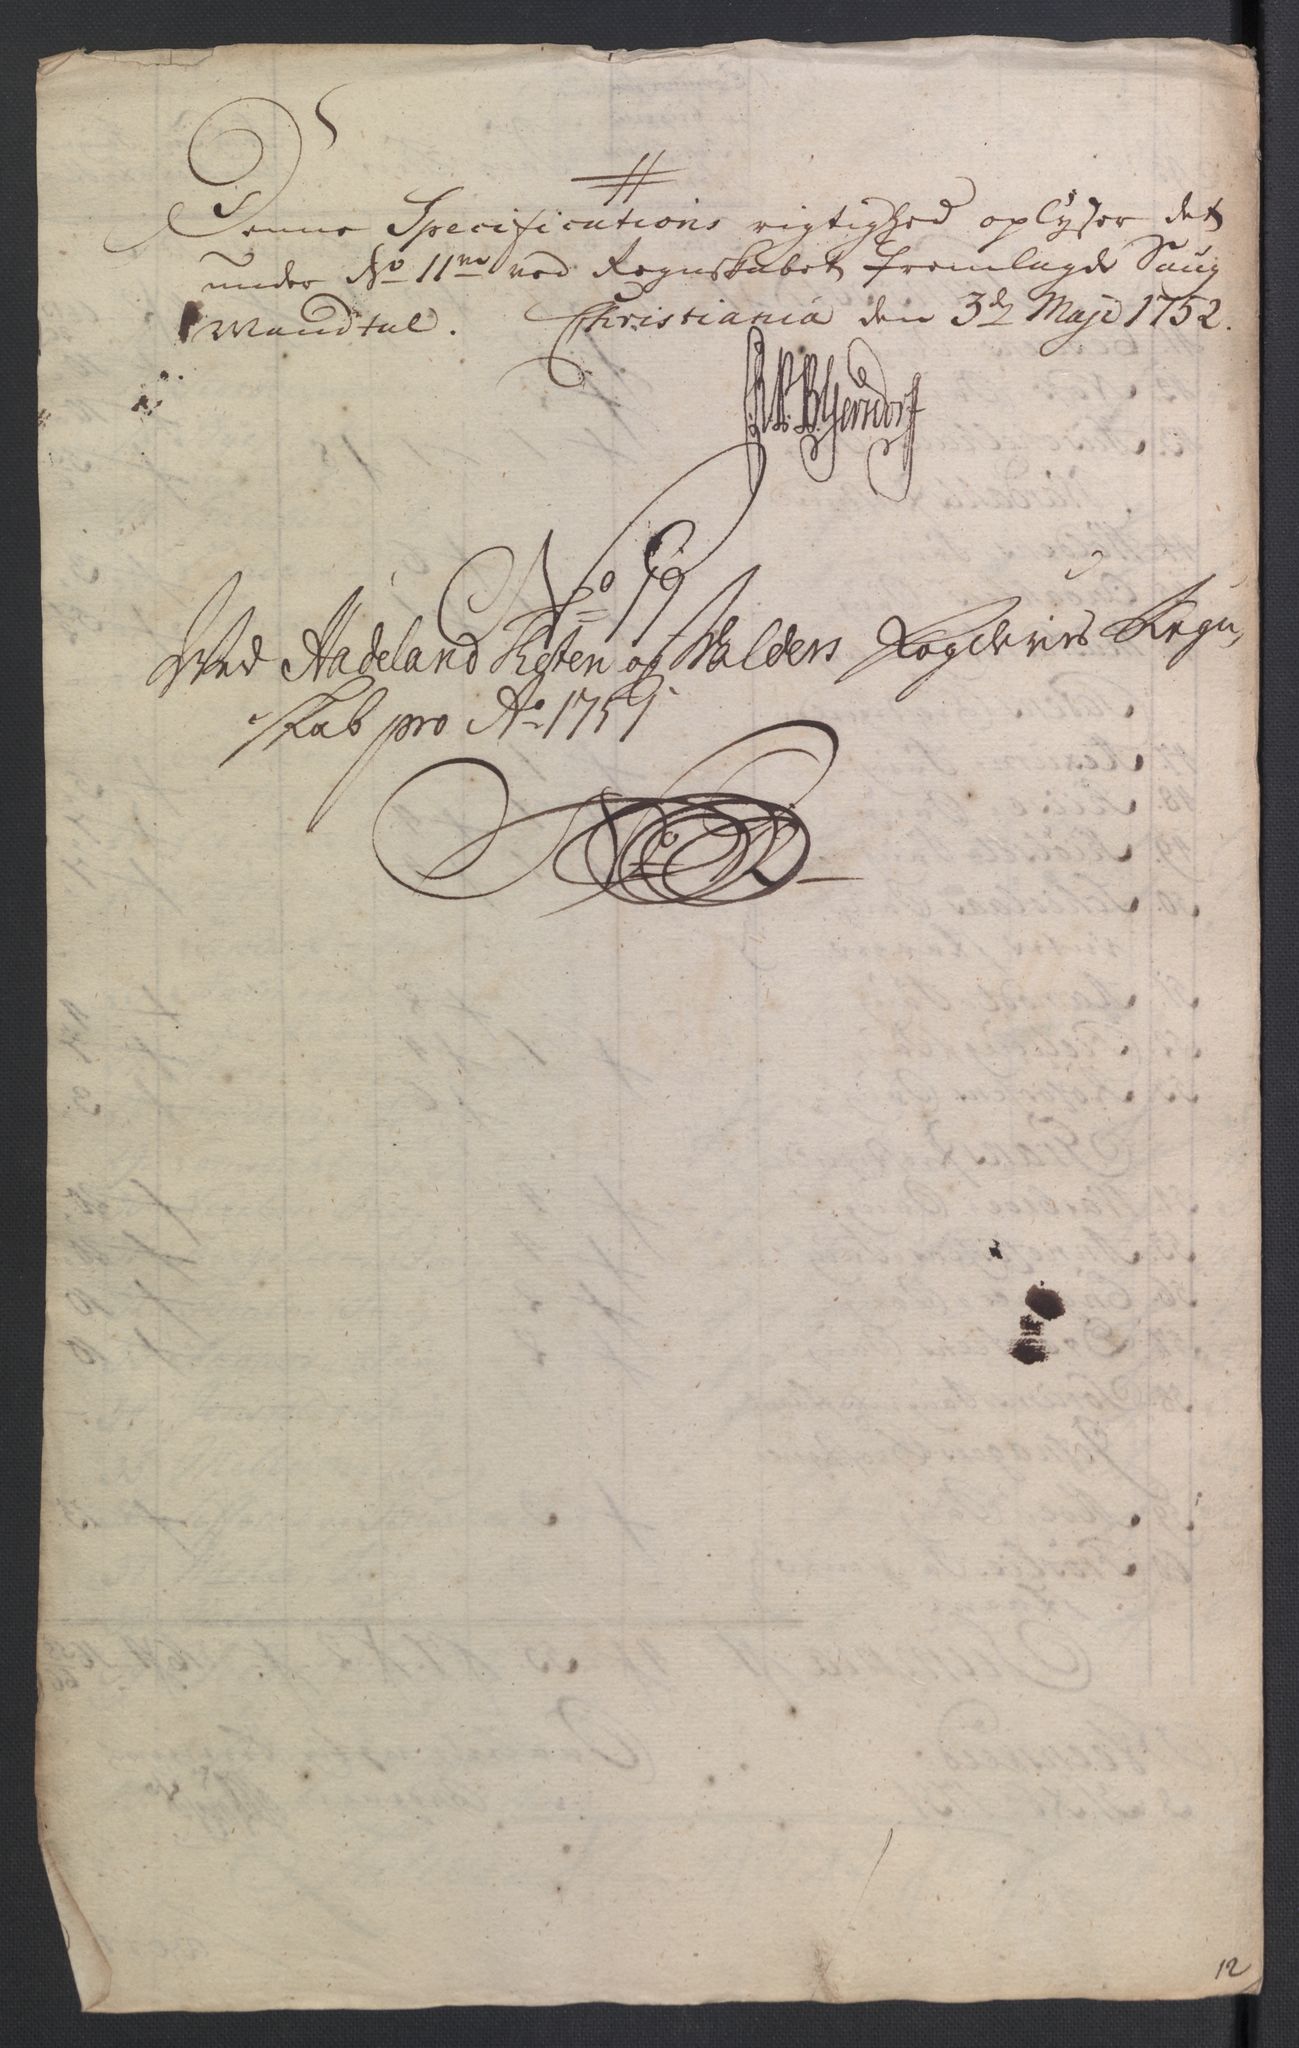 #
Denne Specifications rigtighed oplyser det
under No 11ve ved Regnskabet fremlagde Saug
Mandtal. Christiania den 3de Maji 1752.
No 19
Ved Hadeland Ringerige og Walders Fogderies Regn
skab pro Ao 1751
No 12
12